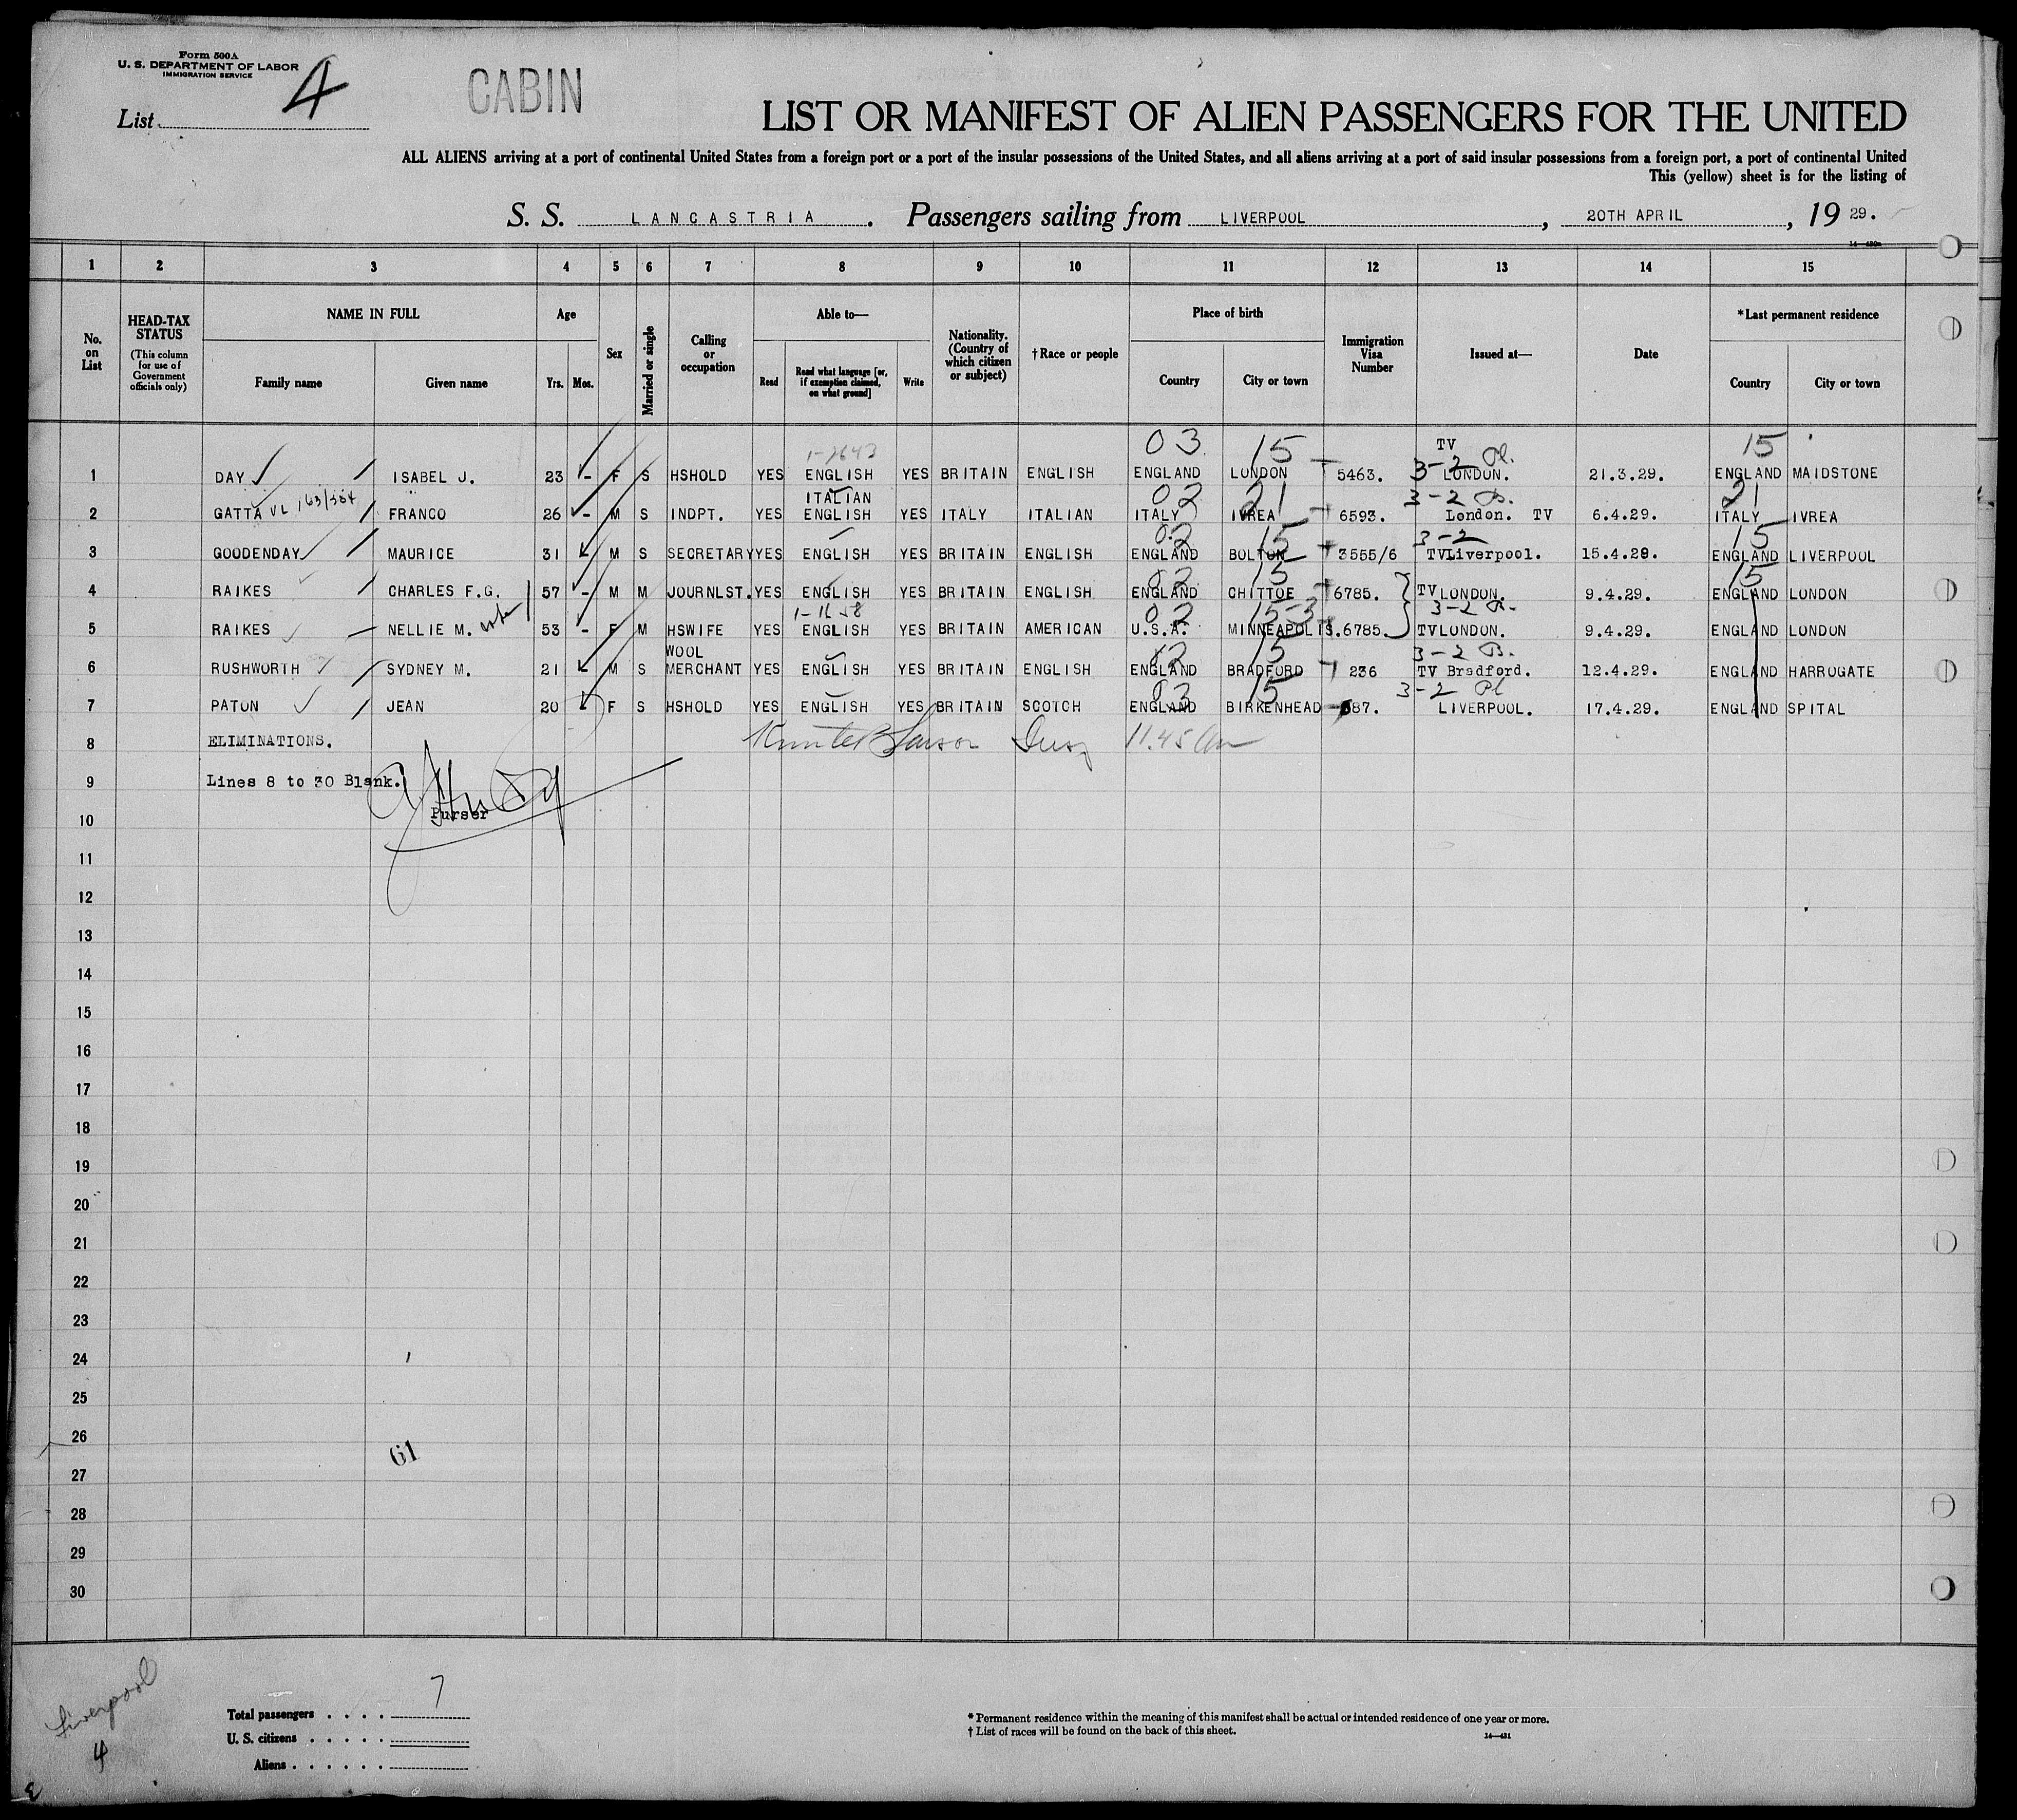 Form 500A
U. S. DEPARTMENT OF LABOR
IMMIGRATION SERVICE
List 4
CABIN
LIST OR MANIFEST OF ALIEN PASSENGERS FOR THE UNITED
ALL ALIENS arriving at a port of continental United States from a foreign port or a port of the insular possessions of the United States, and all aliens arriving at a port of said insular possessions from a foreign port, a port of continental United
This (yellow) sheet is for the listing of
S. S. LANCASTRIA. Passengers sailing from LIVERPOOL, 20TH APRIL, 19 29.
1 2 3 4 5 6 7 8 9 10 11 12 13 14 15
No. on List
HEAD-TAX STATUS (This column for use of Government officials only)
NAME IN FULL
Family name
Given name
Age
Yrs. Mos.
Sex
Married or single
Calling or occupation
Able to—
Read
Read what language [or, if exemption claimed, on what ground]
Write
Nationality. (Country of which citizen or subject)
†Race or people
Place of birth
Country
City or town
Immigration Visa Number
Issued at—
Date
*Last permanent residence
Country
City or town
03 15 TV 15
1 DAY ISABEL J. 23 - F S HSHOLD YES ENGLISH YES BRITAIN ENGLISH ENGLAND LONDON 5463. 3-2 LONDON. 21.3.29. ENGLAND MAIDSTONE
ITALIAN 02 21 3-2 21
2 GATTA FRANCO 26 - M S INDPT. YES ENGLISH YES ITALY ITALIAN ITALY IVREA 6593. London. TV 6.4.29. ITALY IVREA
02 15 3-2 15
3 GOODENDAY MAURICE 31 M S SECRETARY YES ENGLISH YES BRITAIN ENGLISH ENGLAND BOLTON 3555/6 TVLiverpool. 15.4.29. ENGLAND LIVERPOOL
02 15 15
4 RAIKES CHARLES F.G. 57 - M M JOURNLST. YES ENGLISH YES BRITAIN ENGLISH ENGLAND CHITTOE 6785. TVLONDON. 9.4.29. ENGLAND LONDON
02 15-3 3-2
5 RAIKES NELLIE M. 53 - F M HSWIFE YES ENGLISH YES BRITAIN AMERICAN U.S.A. MINNEAPOLIS. 6785. TVLONDON. 9.4.29. ENGLAND LONDON
WOOL 12 15 3-2 B.
6 RUSHWORTH SYDNEY M. 21 - M S MERCHANT YES ENGLISH YES BRITAIN ENGLISH ENGLAND BRADFORD 236 TV Bradford. 12.4.29. ENGLAND HARROGATE
03 15 3-2 Pl
7 PATON JEAN 20 F S HSHOLD YES ENGLISH YES BRITAIN SCOTCH ENGLAND BIRKENHEAD 87. LIVERPOOL. 17.4.29. ENGLAND SPITAL
8 ELIMINATIONS. 11.45 am
9 Lines 8 to 30 Blank.
Purser
10
11
12
13
14
15
16
17
18
19
20
21
22
23
24
25
26
61
27
28
29
30
Liverpool
4
Total passengers . . . . 7
U. S. citizens . . . . .
Aliens . . . . . .
* Permanent residence within the meaning of this manifest shall be actual or intended residence of one year or more.
† List of races will be found on the back of this sheet.
14—431